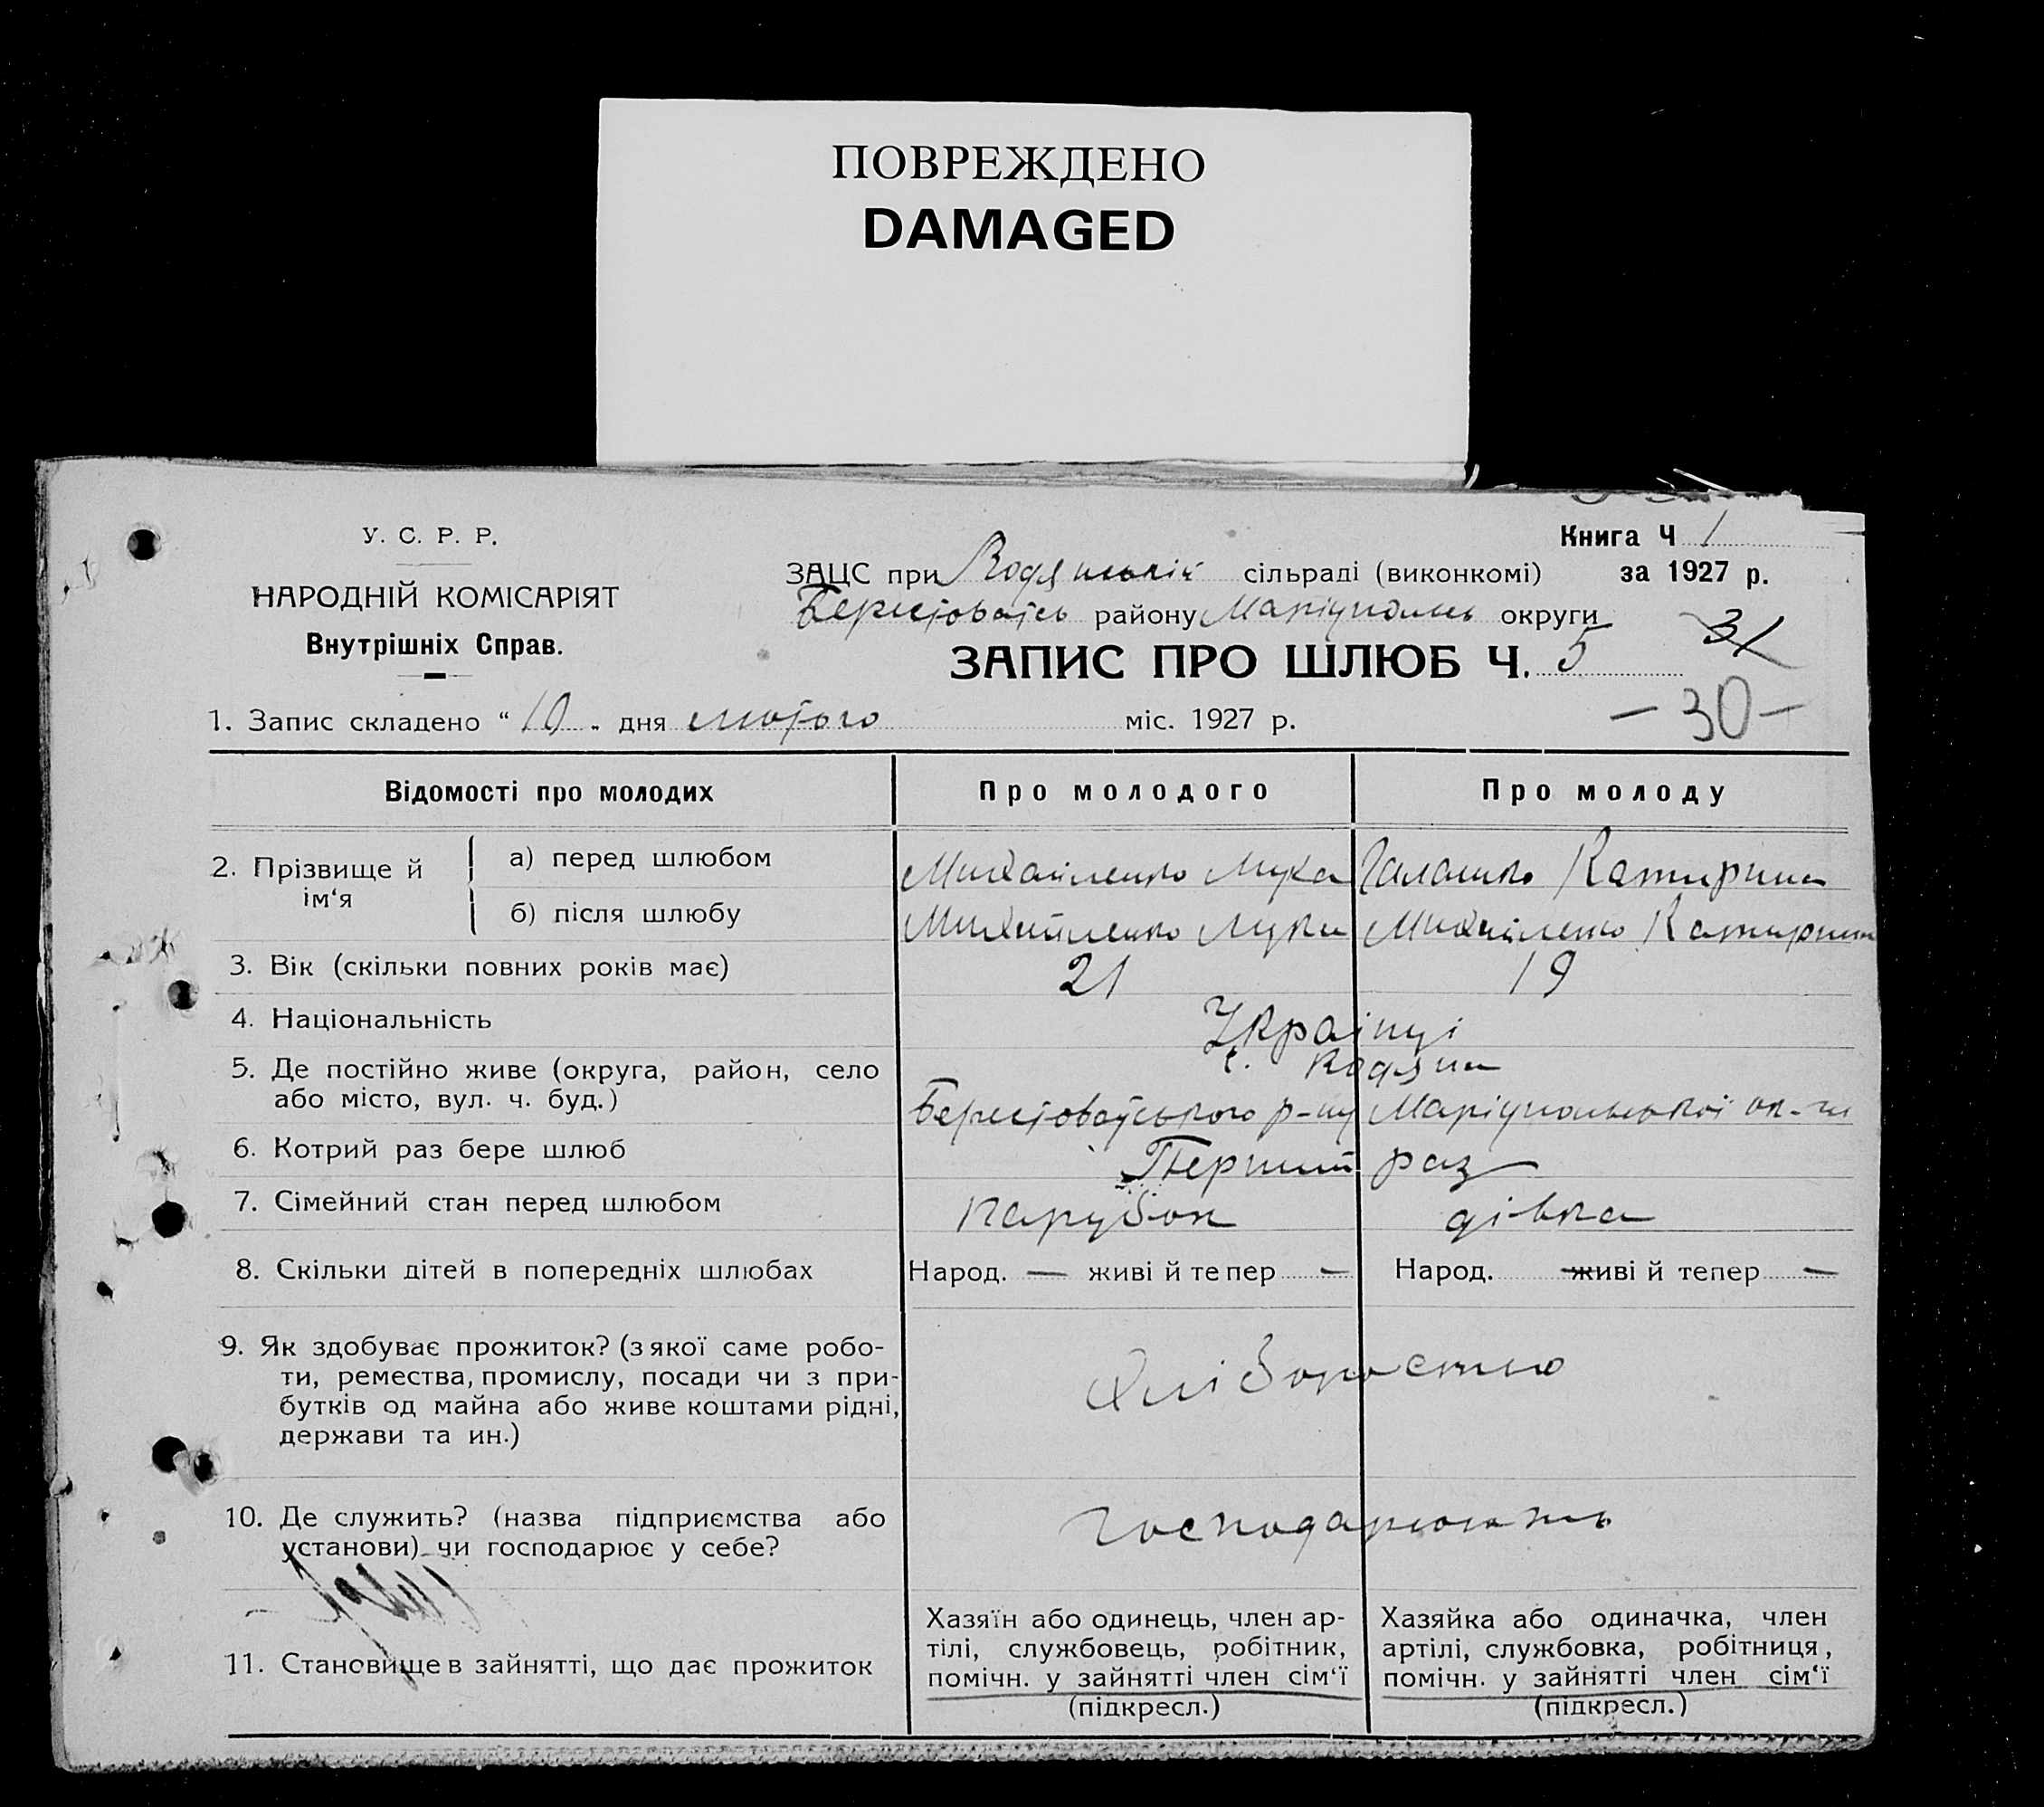 ПОВРЕЖДЕНО
DAMAGED
У. С. Р. Р.
НАРОДНІЙ КОМІСАРІЯТ
Внутрішніх Справ.
Книга Ч 1
ЗАЦС при Водянській сільраді (виконкомі) за 1927 р.
району Маріупольськ округи
31
ЗАПИС ПРО ШЛЮБ Ч. 5
— 30 —
1. Запис складено “ 10 „ дня лютого міс. 1927 р.
Відомості про молодих Про молодого Про молоду
2. Прізвище й ім‘я
а) перед шлюбом Михайленко Лука Катирина
б) після шлюбу Михайленко Лука Михайленко Катирина
3. Вік (скільки повних років має) 21 19
4. Національність Українці
5. Де постійно живе (округа, район, село с. Водяна
або місто, вул. ч. буд.) р-ну Маріупольської ок-ги
6. Котрий раз бере шлюб Перший раз
7. Сімейний стан перед шлюбом парубок дівка
8. Скільки дітей в попередніх шлюбах Народ. — живі й тепер — Народ. — живі й тепер —
9. Як здобуває прожиток? (з якої саме робо-
ти, ремества, промислу, посади чи з при-
бутків од майна або живе коштами рідні,
держави та ин.)
Хліборобством
10. Де служить? (назва підприємства або
установи) чи господарює у себе?
господарюють
11. Становище в зайнятті, що дає прожиток
Хазяїн або одинець, член ар-
тілі, службовець, робітник,
помічн. у зайнятті член сім‘ї
(підкресл.)
Хазяйка або одиначка, член
артілі, службовка, робітниця,
помічн. у зайнятті член сім‘ї
(підкресл.)